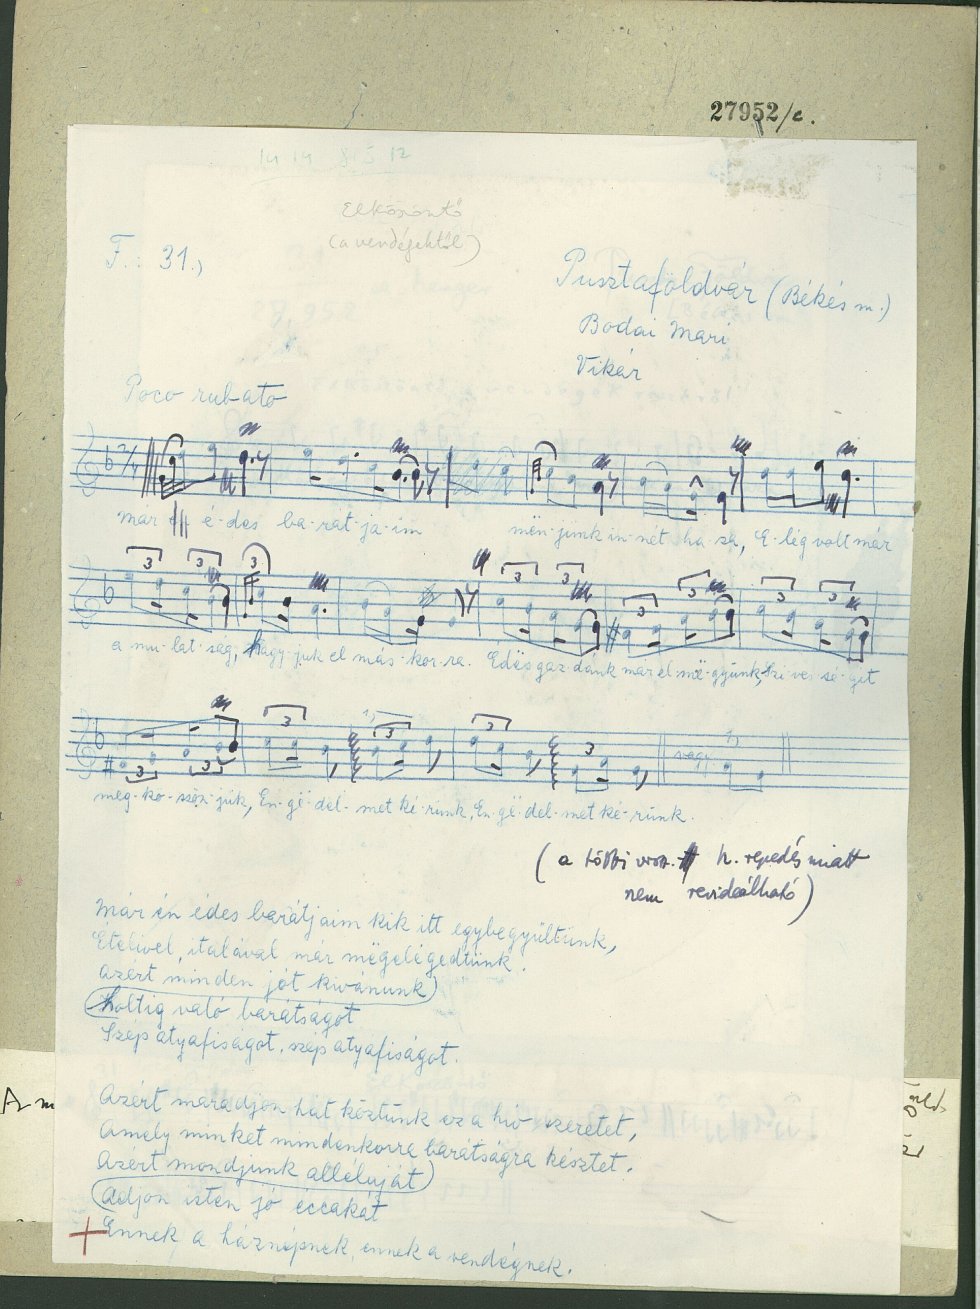 27952/c.
14 14 8 5 12
Elköszöntő
(a vendégektől)
F. 31.)
Pusztaföldvár (Békés m.)
Bodai Mari
Vikár
Poco rubato
már é-des ba-rát-ja-im mën-junk in-nét ha-za, E-lég volt már
a mu-lat-ság, hagy-juk el más-kor-ra. Édës gaz-dánk már el-më-gyünk, Szí-ves sé-git
meg-kö-szön-jük, En-gë-del-met ké-rünk, En-gë-del-met ké-rünk.
vagy
(a többi vsz. h. repedés miatt
nem revideálható)
Már én édes barátjaim kik itt egybegyültünk,
Ételivel, italával már mëgelégedtünk.
Azért minden jót kivánunk
holtig való barátságot
Szép atyafiságot, szép atyafiságot.
Azért maradjon hát köztünk ez a hiv szeretet,
Amely minket mindenkorra barátságra késztet.
Azért mondjunk allélúját
Adjon isten jó éccakát
Ennek a háznépnek, ennek a vendégnek.